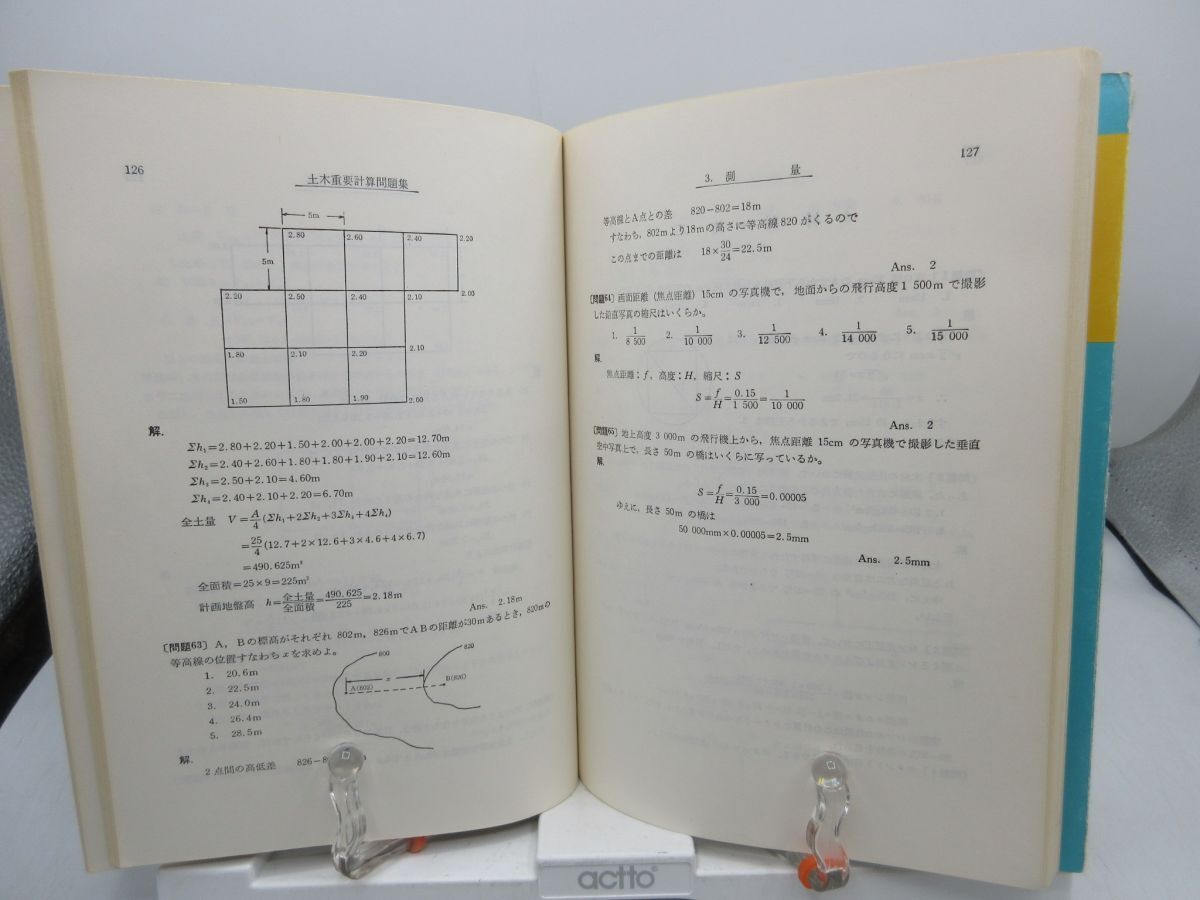 126
土木重要計算問題集
5m
5m
2.80 2.60 2.40 2.20
2.20 2.50 2.40 2.10 2.00
1.80 2.10 2.20 2.10
1.50 1.80 1.90 2.00
解.
Σh₁=2.80+2.20+1.50+2.00+2.00+2.20=12.70m
Σh₂=2.40+2.60+1.80+1.80+1.90+2.10=12.60m
Σh₃=2.50+2.10=4.60m
Σh₄=2.40+2.10+2.20=6.70m
全土量 V=A/4(Σh₁+2Σh₂+3Σh₃+4Σh₄)
=25/4(12.7+2×12.6+3×4.6+4×6.7)
=490.625m³
全面積=25×9=225m²
計画地盤高 h=全土量/全面積=490.625/225=2.18m
Ans. 2.18m
〔問題63〕A, Bの標高がそれぞれ 802m, 826mでABの距離が30mあるとき, 820mの
等高線の位置すなわちxを求めよ。
1. 20.6m
2. 22.5m
3. 24.0m
4. 26.4m
5. 28.5m
800
820
x
A(802)
B(826)
解.
2点間の高低差 826−8
127
3. 測 量
等高線とA点との差 820−802=18m
すなわち, 802mより18mの高さに等高線820がくるので
この点までの距離は 18×30/24=22.5m
Ans. 2
〔問題64〕画面距離(焦点距離)15cm の写真機で, 地面からの飛行高度1 500m で撮影
した鉛直写真の縮尺はいくらか。
1. 1/8 500 2. 1/10 000 3. 1/12 500 4. 1/14 000 5. 1/15 000
解.
焦点距離:f, 高度:H, 縮尺:S
S=f/H=0.15/1 500=1/10 000
Ans. 2
〔問題65〕地上高度 3 000m の飛行機上から, 焦点距離 15cm の写真機で撮影した垂直
空中写真上で, 長さ 50m の橋はいくらに写っているか。
解.
S=f/H=0.15/3 000=0.00005
ゆえに, 長さ 50m の橋は
50 000mm×0.00005=2.5mm
Ans. 2.5mm
actto